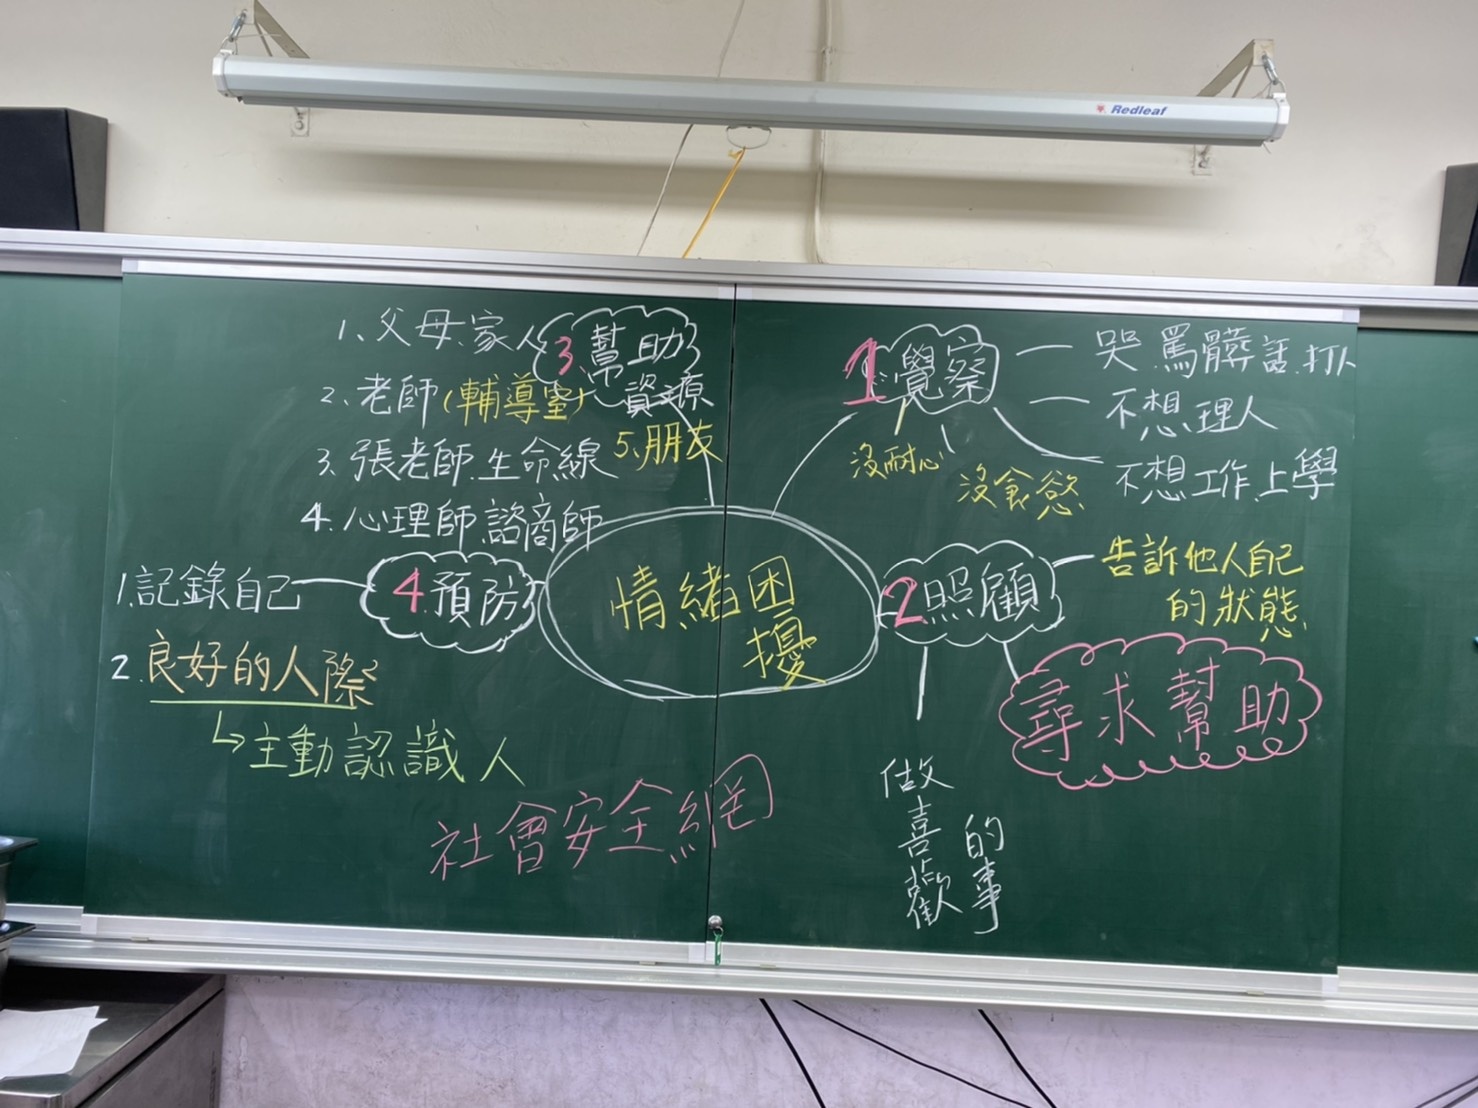 Redleaf
情緒困
擾
1 覺察
哭.罵髒話.打人
不想理人
不想工作.上學
沒耐心
沒食慾
2.照顧
告訴他人自己
的狀態
尋求幫助
做喜歡
的事
3.幫助
資源
1、父母、家人
2、老師(輔導室)
3、張老師.生命線
4、心理師.諮商師
5、朋友
4.預防
1.記錄自己
2.良好的人際
↳主動認識人
社會安全網